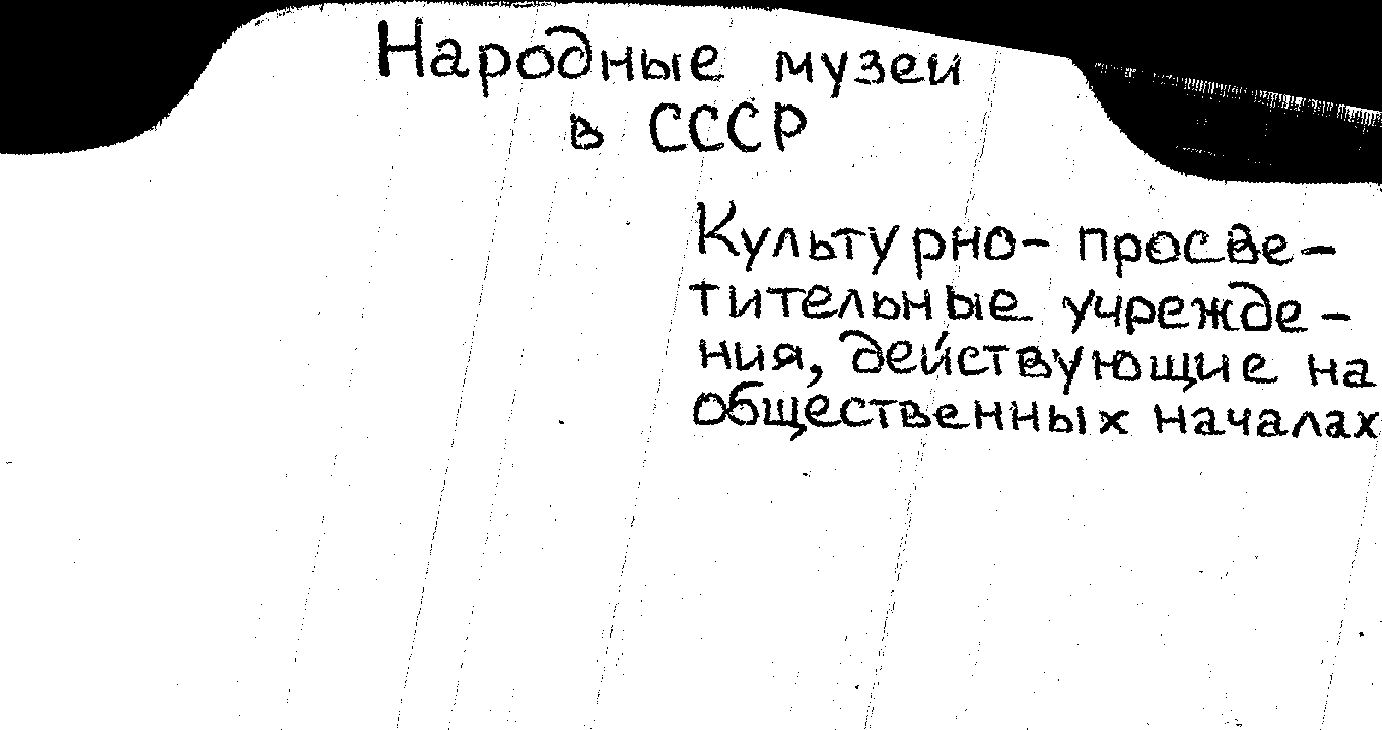 Народные музеи
в СССР
Культурно-просве-
тительные учрежде-
ния, действующие на
общественных началах